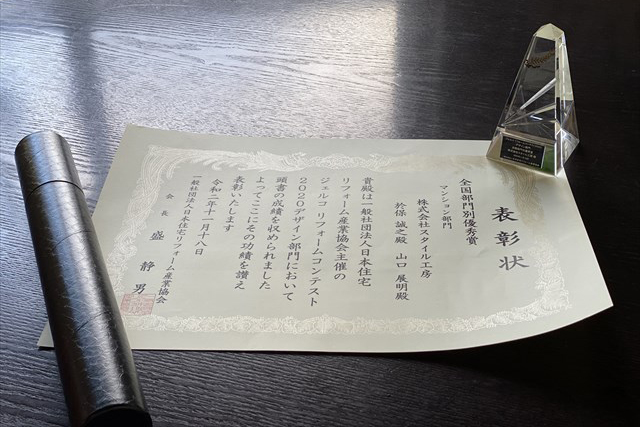 表彰状
全国部門別優秀賞
マンション部門
株式会社スタイル工房
於保 誠之殿 山口 展明殿
貴殿は一般社団法人日本住宅
リフォーム産業協会主催の
ジェルコ リフォームコンテスト
2020デザイン部門において
頭書の成績を収められました
よってここにその功績を讃え
表彰いたします
令和二年十一月十八日
一般社団法人日本住宅リフォーム産業協会
会長 盛 静男